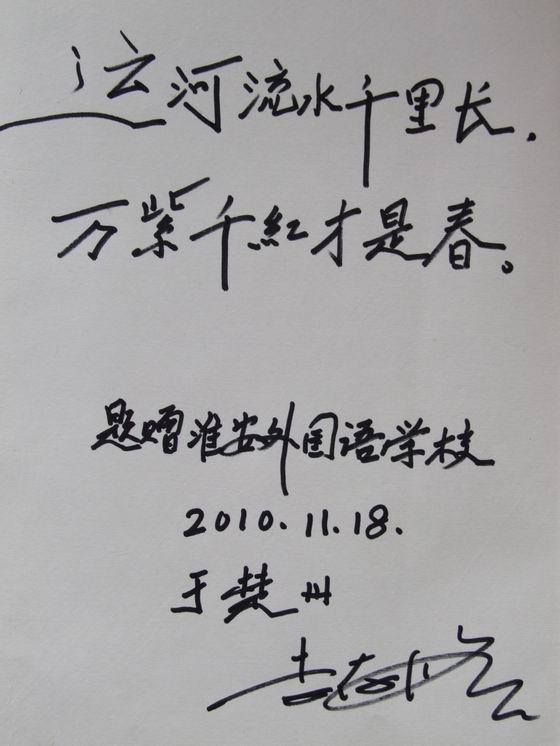 运河流水千里长，
万紫千紅才是春。
题赠淮安外国语学校
2010.11.18.
于楚州